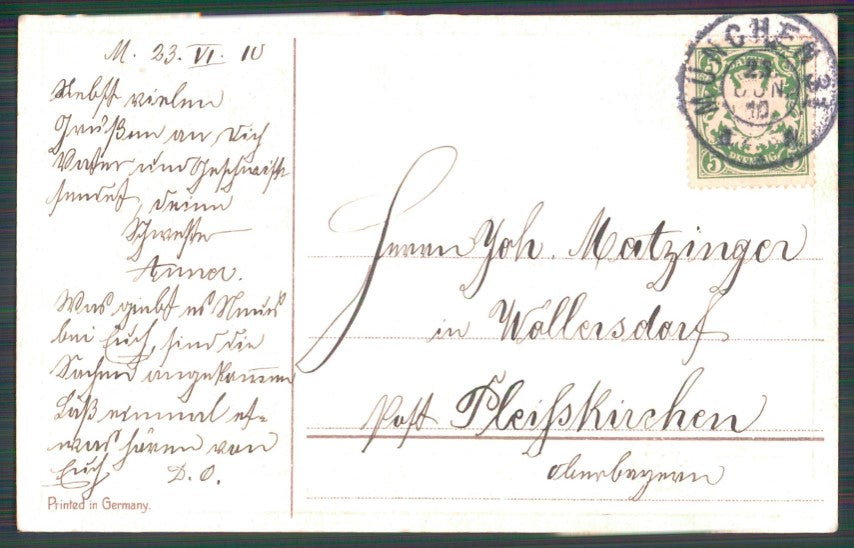 M. 23. VI. 10
Nebst vielen
Grüßen an Dich
Vater und Geschwister
sendet, Deine
Schwester
Anna.
Was giebt es Neues
bei Euch, sind die
Sachen angekommen
Laß einmal et-
was hören von
Euch D. O.
Printed in Germany.
MÜNCHEN 31
23
JUN
10
5 5
Herrn Joh. Matzinger
in Wöllersdorf
Post Pleißkirchen
Oberbayern